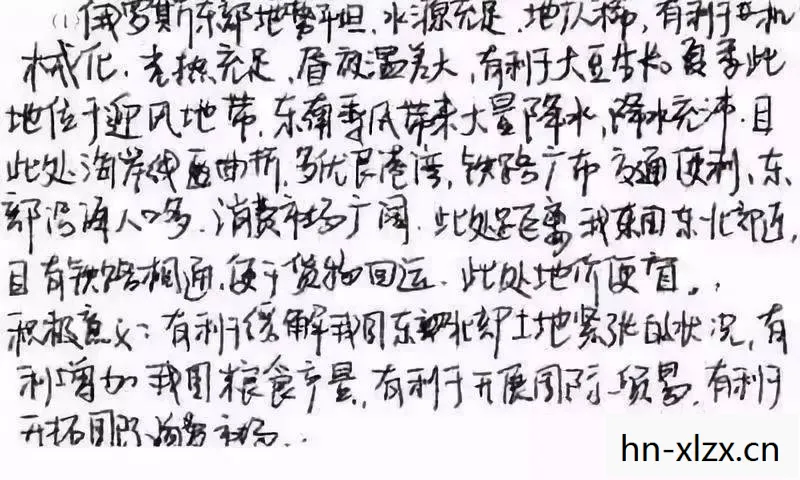 (1)俄罗斯东部地势平坦,水源充足,地广人稀,有利于机
械化,光热充足,昼夜温差大,有利于大豆生长。夏季此
地位于迎风地带,东南季风带来大量降水,降水充沛.且
此处海岸线曲折,多优良港湾,铁路广布交通便利、东
部沿海人口多.消费市场广阔.此处距离我国东北部近,
且有铁路相通,便于货物回运.此处地价便宜。
积极意义:有利于缓解我国东北部土地紧张的状况,有
利增加我国粮食产量,有利于开展国际贸易,有利于
开拓国际消费市场..
hn-xlzx.cn